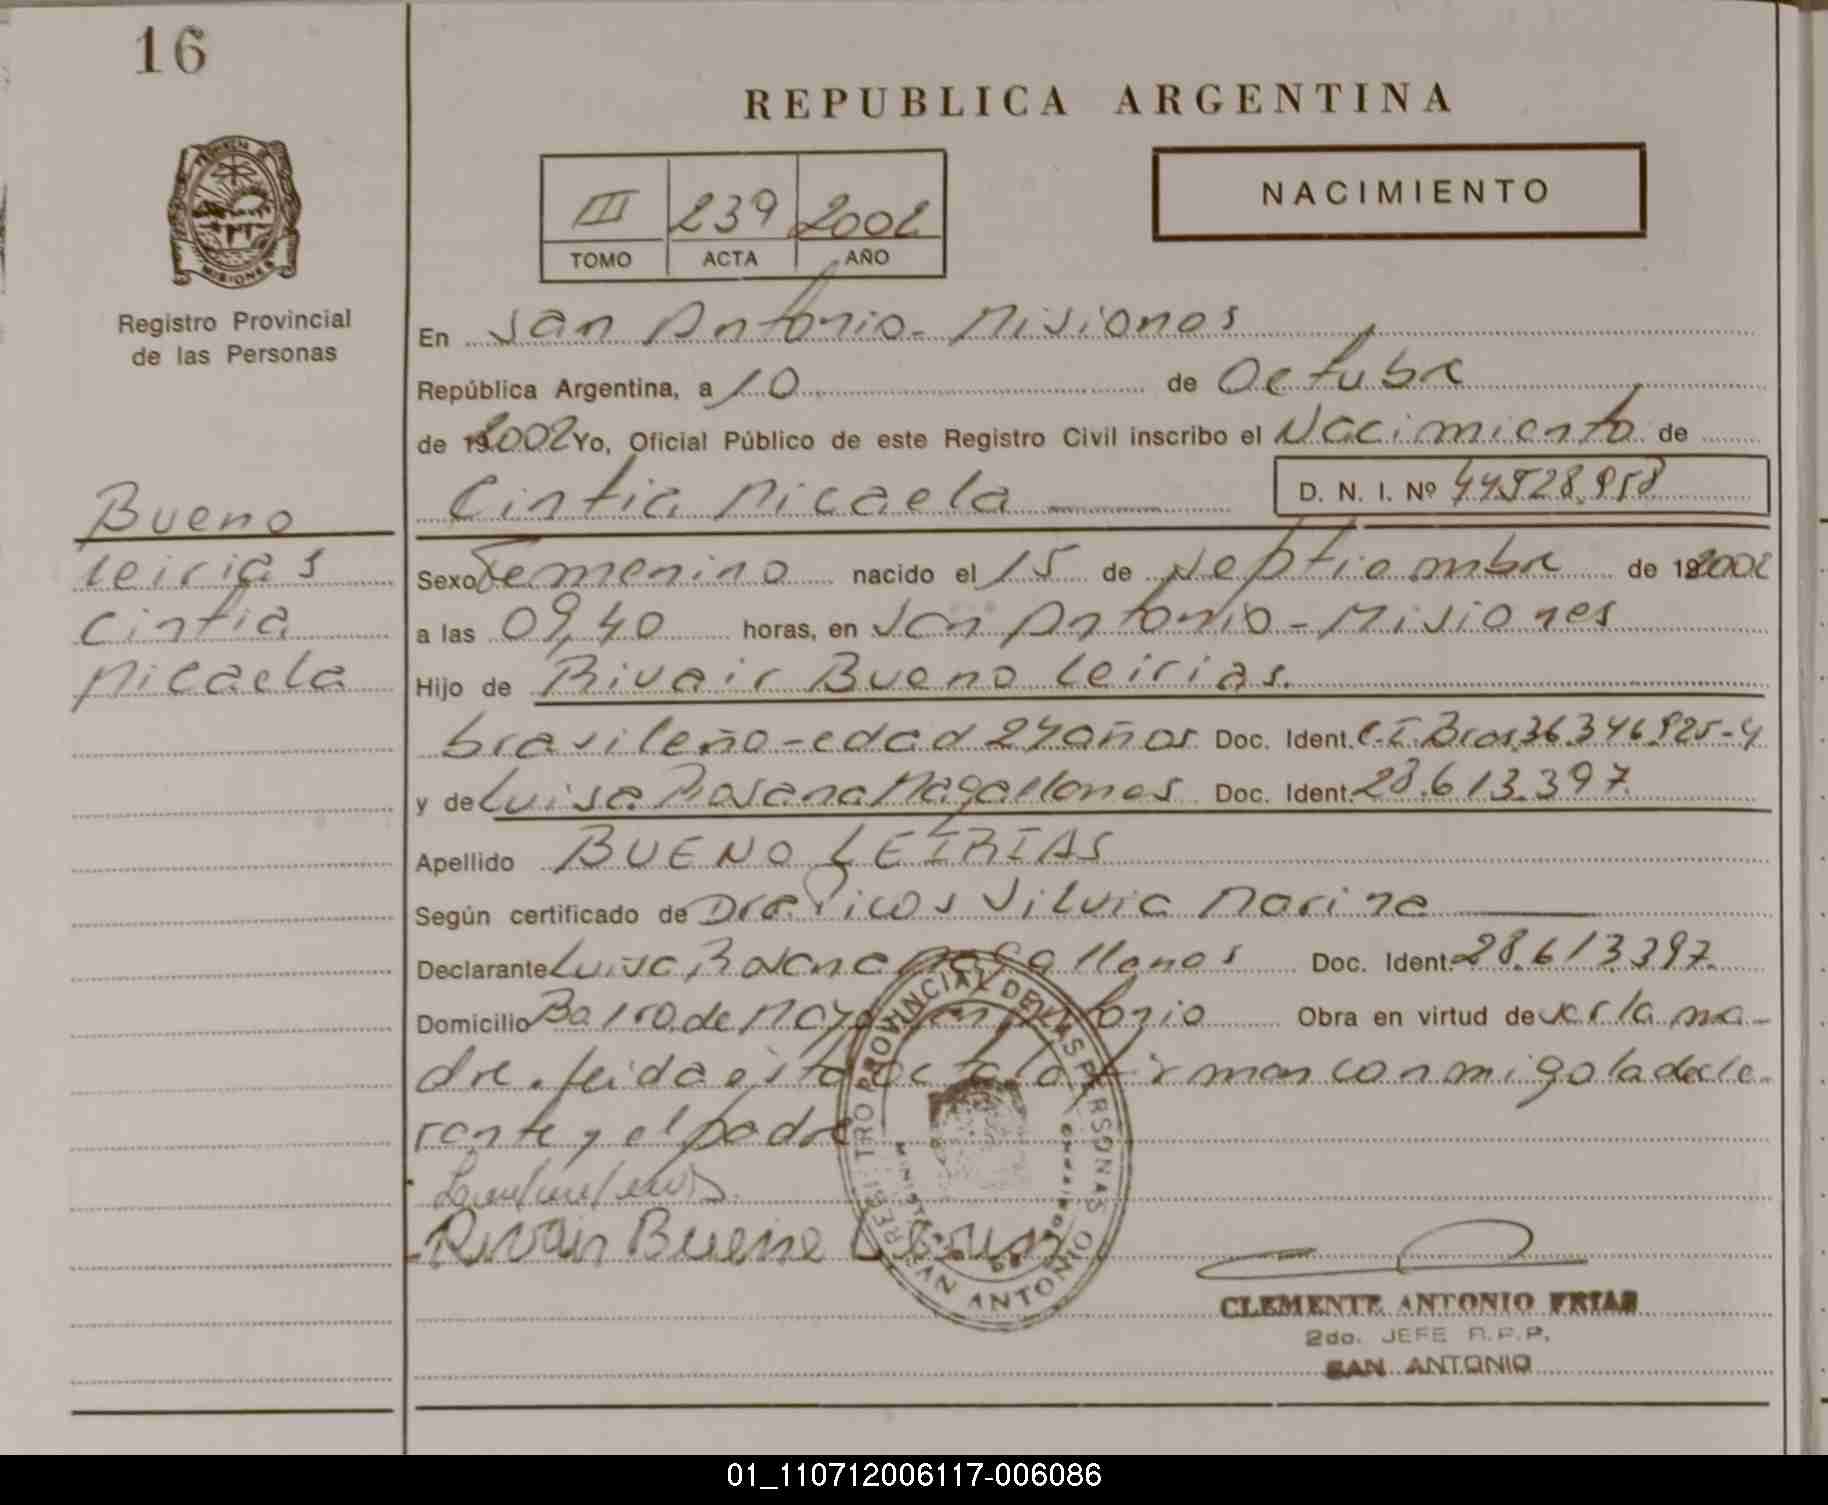 16
REPUBLICA ARGENTINA
NACIMIENTO
III 239 2002
TOMO ACTA AÑO
PROVINCIA DE MISIONES
Registro Provincial
de las Personas
En San Antonio - Misiones
República Argentina, a 10 de Octubre
de 2002 Yo, Oficial Público de este Registro Civil inscribo el Nacimiento de
Cintia Micaela D. N. I. Nº 44.528.958
Bueno
Leirias
Cintia
Micaela
Sexo Femenino nacido el 15 de Septiembre de 2002
a las 09,40 horas, en San Antonio - Misiones
Hijo de Rivair Bueno Leirias.
brasileño - edad 24 años Doc. Ident. C.I. Bras. 36.346.925-4
y de Luisa Rosana Magallanes Doc. Ident. 28.613.397
Apellido BUENO LEIRIAS
Según certificado de Dra. Silvia Marina
Declarante Luisa Rosana Magallanes Doc. Ident. 28.613.397.
Domicilio San Antonio Obra en virtud de ser la ma-
dre. Leida esta acta la firman conmigo la decla-
rante y el padre
Rivair Bueno Leirias
REGISTRO PROVINCIAL DE LAS PERSONAS
SAN ANTONIO
CLEMENTE ANTONIO FRIAS
2do. JEFE R.P.P.
SAN ANTONIO
01_110712006117-006086